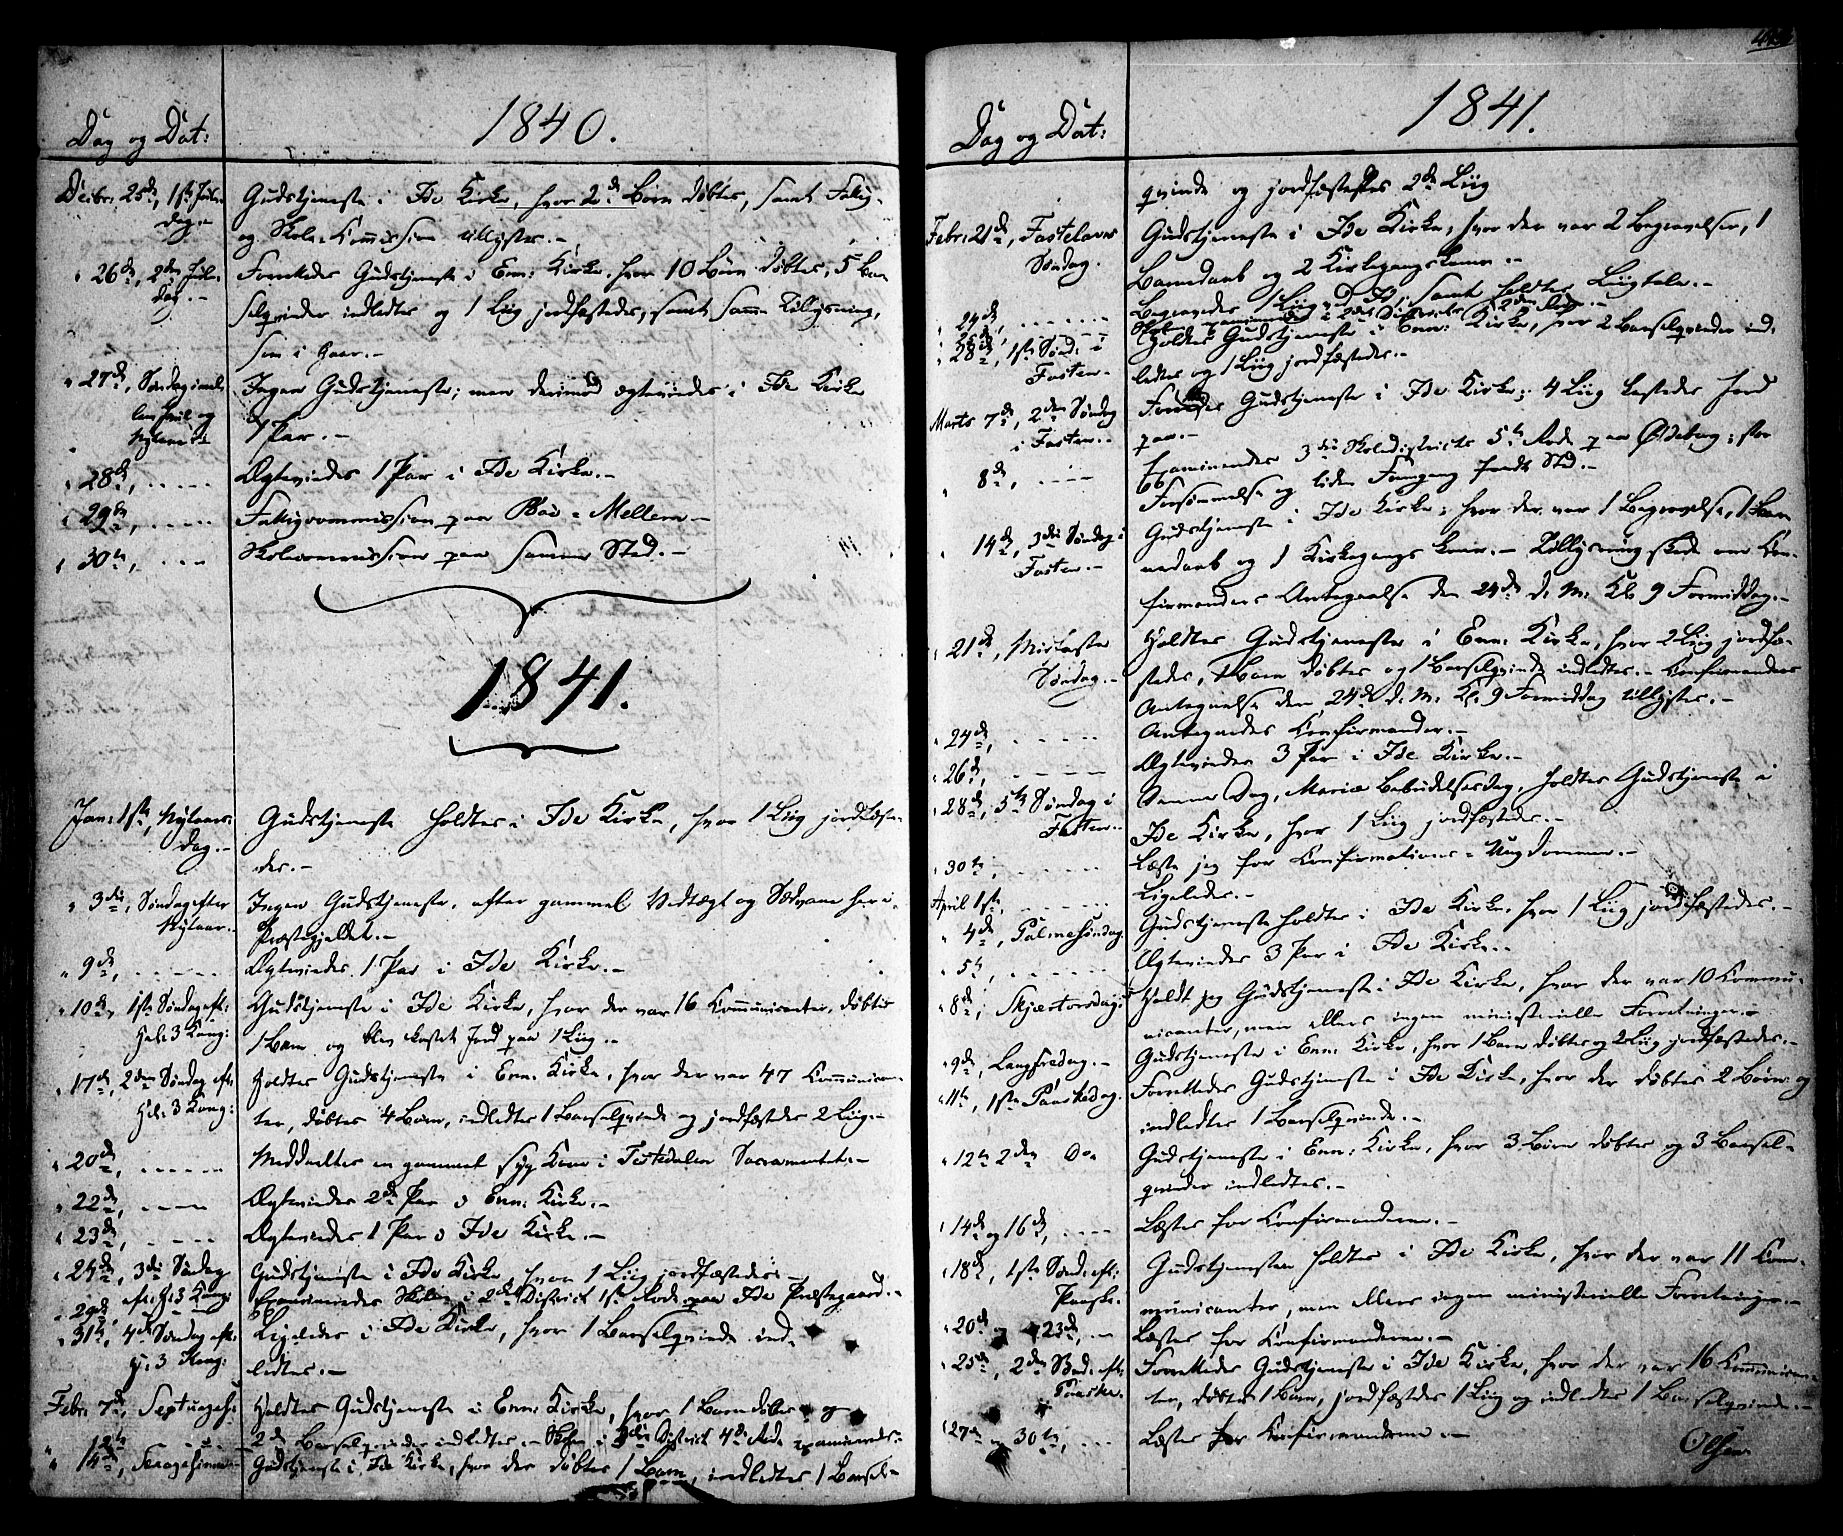 1840.
Dag og Dat:
Decbr. 25de, 1ste Jule-
dag.-
Gudstjeneste i Ide Kirke, hvor 2de Børn døbtes, samt Fattig-
og Skole-Commission tillystes.-
" 26de, 2den Jule-
dag.-
Forrettedes Gudstjeneste i Enn: Kirke, hvor 10 Børn døbtes, 5 Bar-
selqvinder indledtes og 1 Liig jordfæstedes, samt samme Tillysning,
som i Gaar.-
" 27de, Søndag imel-
lem Juul og
Nytaar.-
Ingen Gudstjeneste; men derimod ægteviedes i Ide Kirke
1 Par.-
" 28de, . . . .
Ægteviedes 1 Par i Ide Kirke.-
" 29de, . . . .
Fattigcommission paa Bøe-Mellem.-
" 30te, . . .
Skolecommission paa samme Sted.-
1841.
Jan: 1ste, Nytaars-
dag.-
Gudstjeneste holdtes i Ide Kirke, hvor 1 Liig jordfæste-
des.-
" 3die, Søndag efter
Nytaar.-
Ingen Gudstjeneste, efter gammel Vedtægt og Sædvane her i
Præstegjeldet.-
" 9de, . . . .
Ægteviedes 1 Par i Ide Kirke.-
" 10de, 1ste Søndag eft:
Hel: 3 Kong:
Gudstjeneste i Ide Kirke, hvor der var 16 Communicanter, døbtes
1 Barn og blev kastet Jord paa 1 Liig.-
" 17de, 2den Søndag eft:
Hel: 3 Kong:
Holdtes Gudstjeneste i Enn: Kirke, hvor der var 47 Communican-
ter, døbtes 4 Børn, indledtes 1 Barselqvinde og jordfæstedes 2 Liig.-
" 20de, . . . .
Meddeeltes en gammel syg Kone i Tistedalen Sacramentet.-
" 22de, . . . .
Ægteviedes 2de Par i Enn: Kirke.-
" 23de, . . . .
Ægteviedes 1 Par i Ide Kirke.-
" 24de, 3die Søndag
eft: H: 3 Kong:
Gudstjeneste i Ide Kirke, hvor 1 Liig jordfæstedes.-
" 29de,
Examineredes Skolen i 2det District 1ste Rode paa Ide Præstegaard.-
" 31te, 4de Søndag eft:
H: 3 Kong:
Ligeledes i Ide Kirke, hvor 1 Barselqvinde ind-
ledtes.-
Febr: 7de, Septuages:
Holdtes Gudstjeneste i Enn: Kirke, hvor 1 Barn døbtes og
2de Barselqvinder indledtes.- Skolen i 3die District 4de Rode examineredes.
" 14de, Sexagesima.-
Gudstjeneste i Ide Kirke, hvor der døbtes 1 Barn, indledtes 1 Barsel-
1841.
Dag og Dat:
qvinde og jordfæstedes 2de Liig
Febr: 21de, Fastelavns
Søndag.
Gudstjeneste i Ide Kirke, hvor der var 2 Begravelser, 1
Barnedaab og 2 Kirkegangskoner.-
" 24de, . . . .
Begravedes 1 Liig ved Ide, samt holdtes Liigtale.-
" 28de, 1ste Sønd: i
Fasten.-
Holdtes Gudstjeneste i Enn: Kirke, hvor 2 Barselqvinder ind-
ledtes og 1 Liig jordfæstedes.-
Marts 7de, 2den Søndag
i Fasten.-
Forrettedes Gudstjeneste i Ide Kirke; 4 Liig kastedes Jord
paa.-
" 8de, . . . .
Examineredes 3die Skoledistricts 5te Rode paa Øldeberg; stor
Forsømmelse og liden Fremgang fandt Sted.-
" 14de, 3die Søndag i
Fasten.-
Gudstjeneste i Ide Kirke; hvor der var 1 Begravelse, 1 Bar-
nedaab og 1 Kirkegangskone.- Tillysning skede om Con-
firmanders Antagelse den 24de d. M. Kl. 9 Formiddag.-
" 21de, Midfaste
Søndag.-
Holdtes Gudstjeneste i Enn: Kirke, hvor 2 Liig jordfæ-
stedes, 1 Barn døbtes og 1 Barselqvinde indledtes.- Confirmanders
Antagelse den 24de d. M. Kl. 9 Formiddag tillystes.-
" 24de, . . . .
Antagedes Confirmander.-
" 26de, . . . .
Ægteviedes 3 Par i Ide Kirke.-
" 28de, 5te Søndag i
Fasten.-
Samme Dag, Mariæ Bebudelsesdag, holdtes Gudstjeneste i
Ide Kirke, hvor 1 Liig jordfæstedes.-
" 30te, . . . .
Læste jeg for Confirmations-Ungdommen.-
April 1ste, . . . .
Ligeledes.-
" 4de, Palmesøndag.
Gudstjeneste holdtes i Ide Kirke, hvor 1 Liig jordfæstedes.-
" 5te, . . . .
Ægteviedes 3 Par i Ide Kirke.-
" 8de, Skjærtorsdag:
Holdt jeg Gudstjeneste i Ide Kirke, hvor der var 10 Commu-
nicanter, men ellers ingen ministerielle Forretninger.-
" 9de, Langfredag.-
Gudstjeneste i Enn: Kirke, hvor 1 Barn døbtes og 2 Liig jordfæstedes.-
" 11te, 1ste Paaskedag.
Forrettedes Gudstjeneste i Ide Kirke, hvor der døbtes 2 Børn og
indledtes 1 Barselqvinde.-
" 12te 2den Do
Gudstjeneste i Enn: Kirke, hvor 3 Børn døbtes og 3 Barsel-
qvinder indledtes.-
" 14de og 16de, . . .
Læstes for Confirmanderne.-
" 18de, 1ste Sønd: eft:
Paaske.-
Gudstjenesten holdtes i Ide Kirke, hvor der var 11 Com-
municanter, men ellers ingen ministerielle Forretninger.-
" 20de og 23de, . .
Læstes for Confirmanderne.-
" 25de, 2den Sønd: eft:
Paaske.
Forrettedes Gudstjeneste i Ide Kirke, hvor der var 16 Communican-
ter, døbtes 1 Barn, jordfæstedes 1 Liig og indledtes 1 Barselqvinde.-
" 27de og 30te, . . .
Læstes for Confirmanderne.-
Olsen